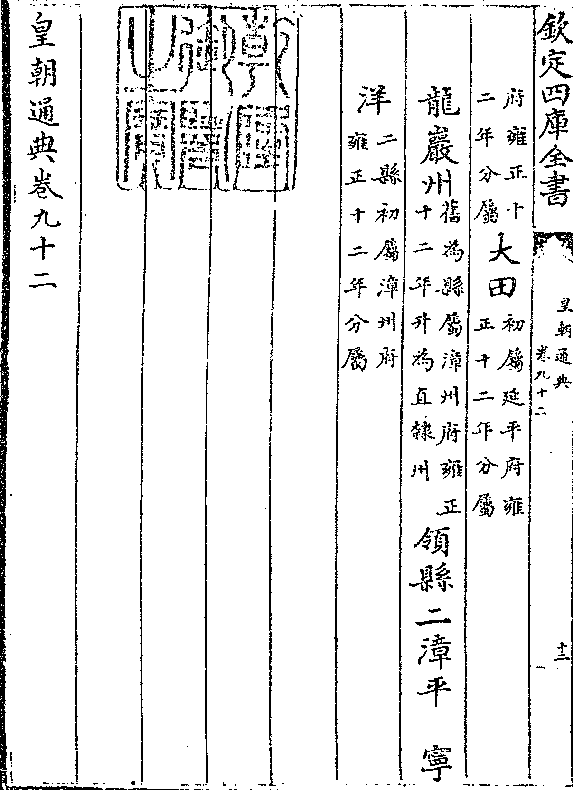 欽定四庫全書
皇朝通典
卷九十二
十三
府雍正十
二年分屬
大田
初屬延平府雍
正十二年分屬
龍巖州
舊為縣屬漳州府雍正
十二年升為直隸州
領縣二漳平 寧
洋
二縣初屬漳州府
雍正十二年分屬
皇朝通典卷九十二